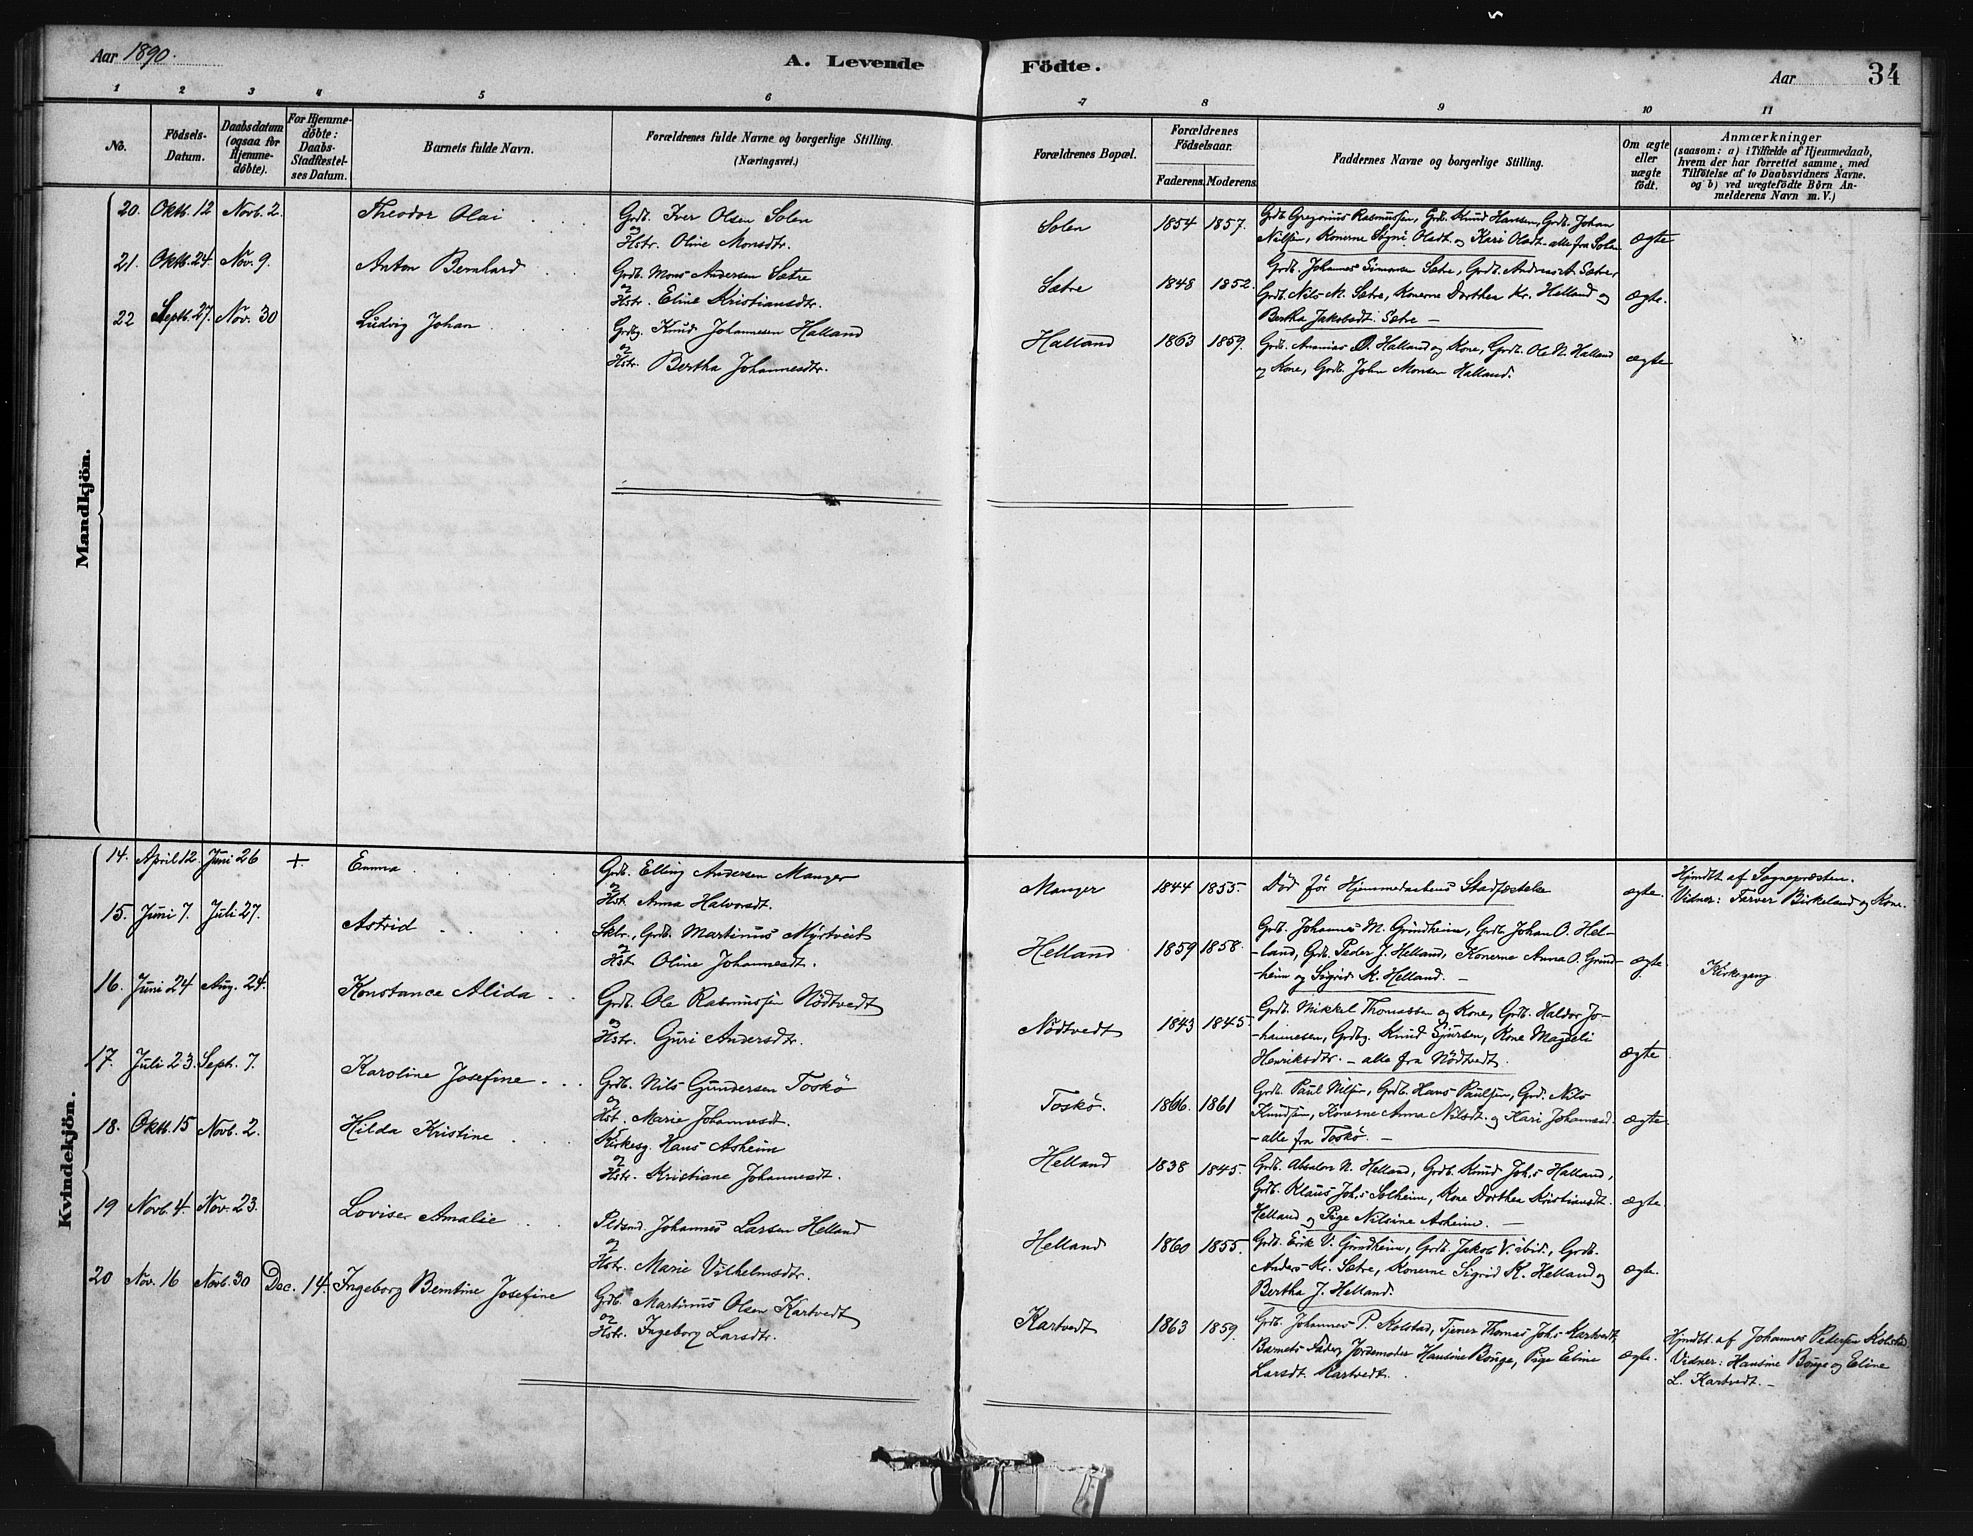 Aar 1890.
A. Levende Födte.
Aar 34
1 2 3 4 5 6 7 8 9 10 11
No.
Födsels-
Datum.
Daabsdatum
(ogsaa for
Hjemme-
döbte).
For Hjemme-
döbte:
Daabs-
Stadfæstel-
ses Datum.
Barnets fulde Navn.
Forældrenes fulde Navne og borgerlige Stilling.
(Næringsvei.)
Forældrenes Bopæl.
Forældrenes
Födselsaar.
Faderens. Moderens.
Faddernes Navne og borgerlige Stilling.
Om ægte
eller
uægte
födt.
Anmærkninger
(saasom: a) i Tilfælde af Hjemmedaab,
hvem der har forrettet samme, med
Tilföielse af to Daabsvidners Navne.
og b) ved uægtefödte Börn An-
melderens Navn m. V.)
Mandkjön.
20. Oktb. 12 Novb. 2. Theodor Olai
Grdb. Iver Olsen Solen
og
Hstr. Oline Monsdtr.
Solen 1854 1857.
Grdb Gregorius Rasmussen, Grdb. Knud Hansen, Grdb. Johan
Nilsen, Konerne Signi Olsdt. og Kari Olsdt. alle fra Solen
ægte
21. Oktb. 24. Nov. 9. Anton Bernhard
Grdb. Mons Andersen Sætre
og
Hstr. Eline Kristiansdtr.
Sætre 1848 1852.
Grdb. Johannes Simonsen Sætre, Grdb. Andreas A. Sætre,
Grdb. Nils M. Sætre, Konerne Dorthea Kr. Helland og
Bertha Jakobsdt. Sætre –
ægte.
22 Septb. 27. Nov. 30 Ludvig Johan
Grdbg. Knud Johannesen Halland
og
Hstr. Bertha Johannesdtr.
Halland 1863 1859.
Grdb. Ananias D. Halland og Kone, Grdb. Ole N. Halland
og Kone, Grdb. John Monsen Halland.
ægte
Kvindekjön.
14. April 12. Juni 26 + Emma
Grdb. Elling Andersen Manger
og
Hst. Anna Halvorsdt.
Manger 1844 1855.
Död för Hjemmedaabens Stadfæstelse
ægte.
Hjmdt. af Sognepræsten.
Vidner: Farver Birkeland og Kone.
15. Juni 7. Juli 27. Astrid
Sklr., Grdb. Martinus Myrtveit
og
Hst. Oline Johannesdt.
Helland 1859 1858.
Grdb. Johannes M. Grindheim, Grdb. Johan O. Hel-
-land, Grdb. Peder J. Helland, Konerne Anna O. Grind-
-heim og Sigrid K. Helland. –
ægte.
Kirkegang
16. Juni 24 Aug. 24. Konstance Alida
Grdb. Ole Rasmussen Nödtvedt
og
Hstr. Guri Andersdtr.
Nödtvedt 1843 1845.
Grdb. Mikkel Thomassen og Kone, Grdb. Haldor Jo-
-hannesen, Grdbg. Knud Sjursen, Kone Magdeli
Henriksdtr. – alle fra Nödtvedt.
ægte
17. Juli 23. Septr. 7. Karoline Josefine
Grdb. Nils Gundersen Toskö
og
Hst. Marie Johannesdt.
Toskö. 1866. 1861
Grdb. Paul Nilsen, Grdb. Hans Paulsen, Grd. Nils
Knudsen, Konerne Anna Nilsdt. og Kari Johannesd.
– alle fra Toskö. –
ægte
18. Oktb. 15 Novb. 2. Hilda Kristine
Kirkesg. Hans Asheim
og
Hstr. Kristiane Johannesdt.
Helland 1838 1845.
Grdb. Absalon N. Helland, Grdb. Knud Joh.s Halland,
Grdb. Klaus Joh.s Solheim, Kone Dorthea Kristiansdt.
Helland og Pige Nilsine Asheim. –
ægte.
19 Novb. 4. Nov. 23. Lovise Amalie
Pldsmd. Johannes Larsen Helland
og
Hstr. Marie Vilhelmsdtr.
Helland 1860 1855.
Grdb. Erik V. Grindheim, Grdb. Jakob V. ibid., Grdb.
Anders Kr. Sætre, Konerne Sigrid K. Helland og
Bertha J. Helland.
ægte.
20 Nov. 16 Novb. 30 Dec. 14. Ingeborg Bentine Josefine
Grdb. Martinus Olsen Kartvedt
og
Hstr. Ingeborg Larsdtr.
Kartvedt 1863 1859.
Grdb. Johannes P. Kolstad, Tjener Thomas Joh.s Kartvedt,
Barnets Fader, Jordemoder Hansine Bouge, Pige Eline
Larsdt. Kartvedt.
ægte.
Hjmdt. af Johannes Pedersen Kolstad
Vidner: Hansine Bouge og Eline
L. Kartvedt. –